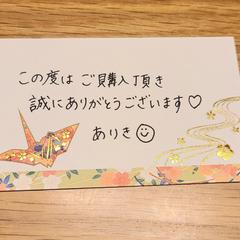 この度は ご購入頂き
誠にありがとうございます♡
ありき☺